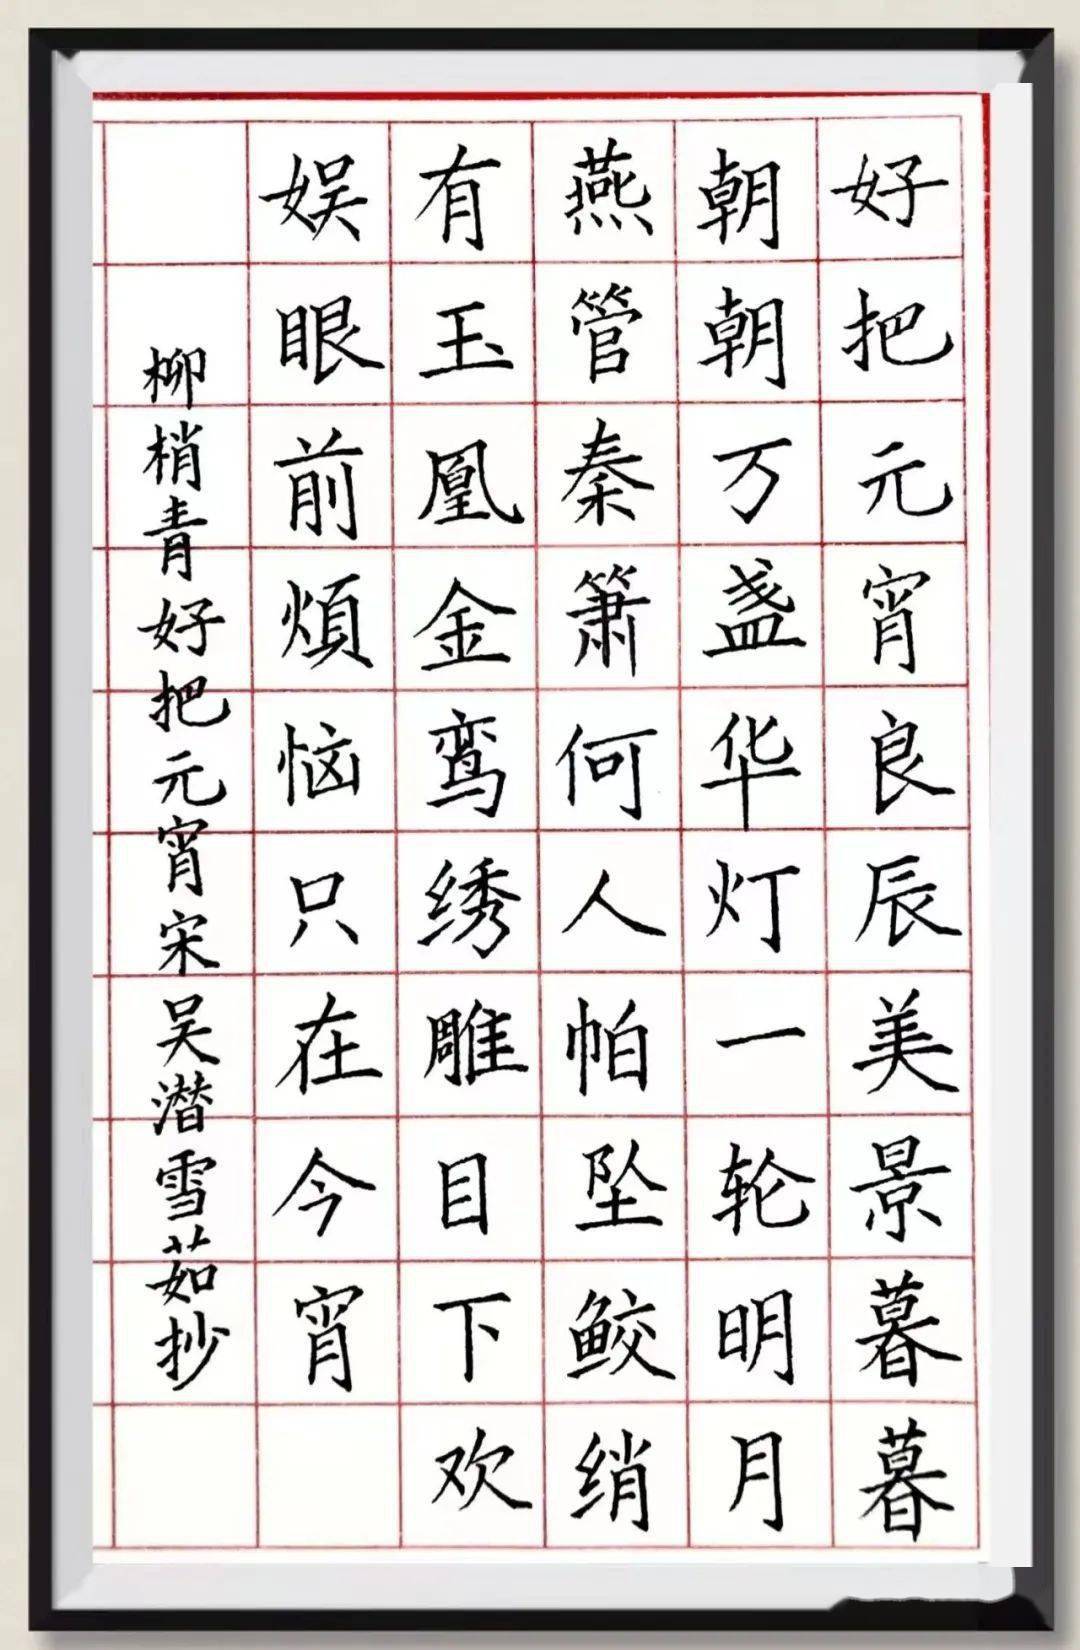 好把元宵良辰美景暮暮
朝朝万盏华灯一轮明月
燕管秦箫何人帕坠鲛绡
有玉凰金鸾绣雕目下欢
娱眼前烦恼只在今宵
柳梢青好把元宵宋吴潜雪茹抄